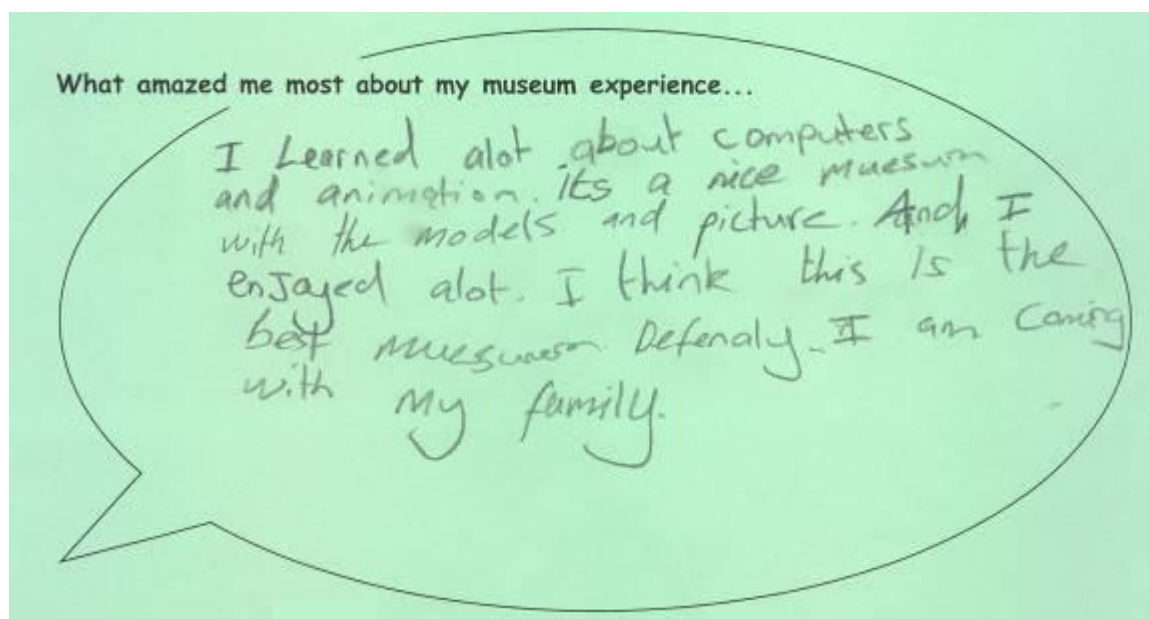 What amazed me most about my museum experience...
I Learned alot about computers
and animation. its a nice muesum
with the models and picture. And I
enJoyed alot. I think this is the
best muesuem Defenaly. I am Coming
with My family.